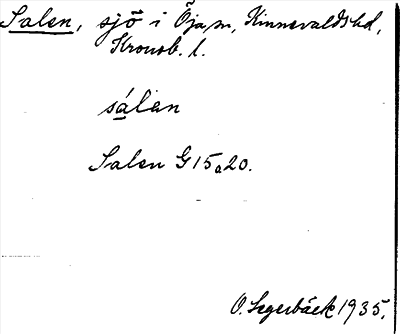 Salen, sjö i Öja sn, Kinnevalds hd,
Kronob. l.
sálen
Salen G 15a20.
O. Segerbäck 1935.